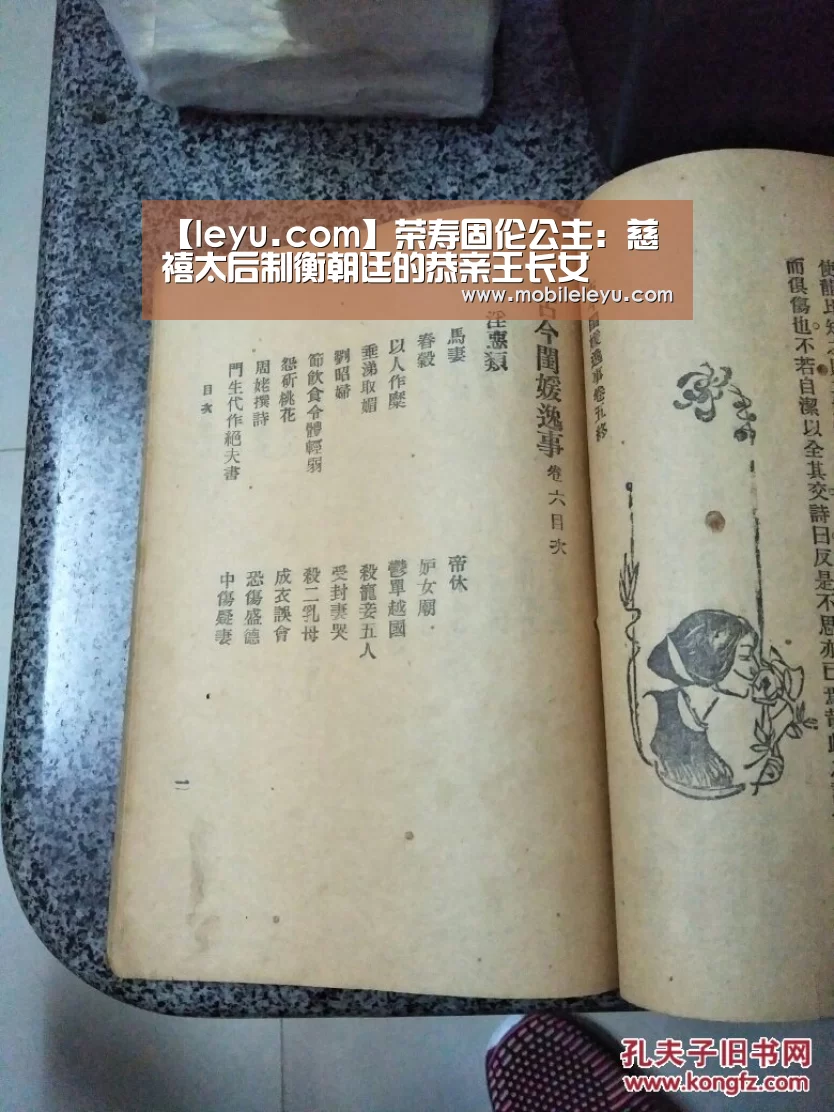 【leyu.com】荣寿固伦公主：慈
禧太后制衡朝廷的恭亲王长女
www.mobileleyu.com
而俱傷也不若自潔以全其交詩曰反是不思亦已焉
事卷五終
古今閨媛逸事 卷六目次
類
馬妻
帝休
舂穀
妒女廟
以人作糜
鬱單越國
垂涕取媚
殺寵妾五人
劉昭婦
受封妻哭
節飲食令體輕弱
殺二乳母
怨斫桃花
成衣誤會
周姥撰詩
恐傷盛德
門生代作絕夫書
中傷疑妻
目次
一
孔夫子旧书网
www.kongfz.com